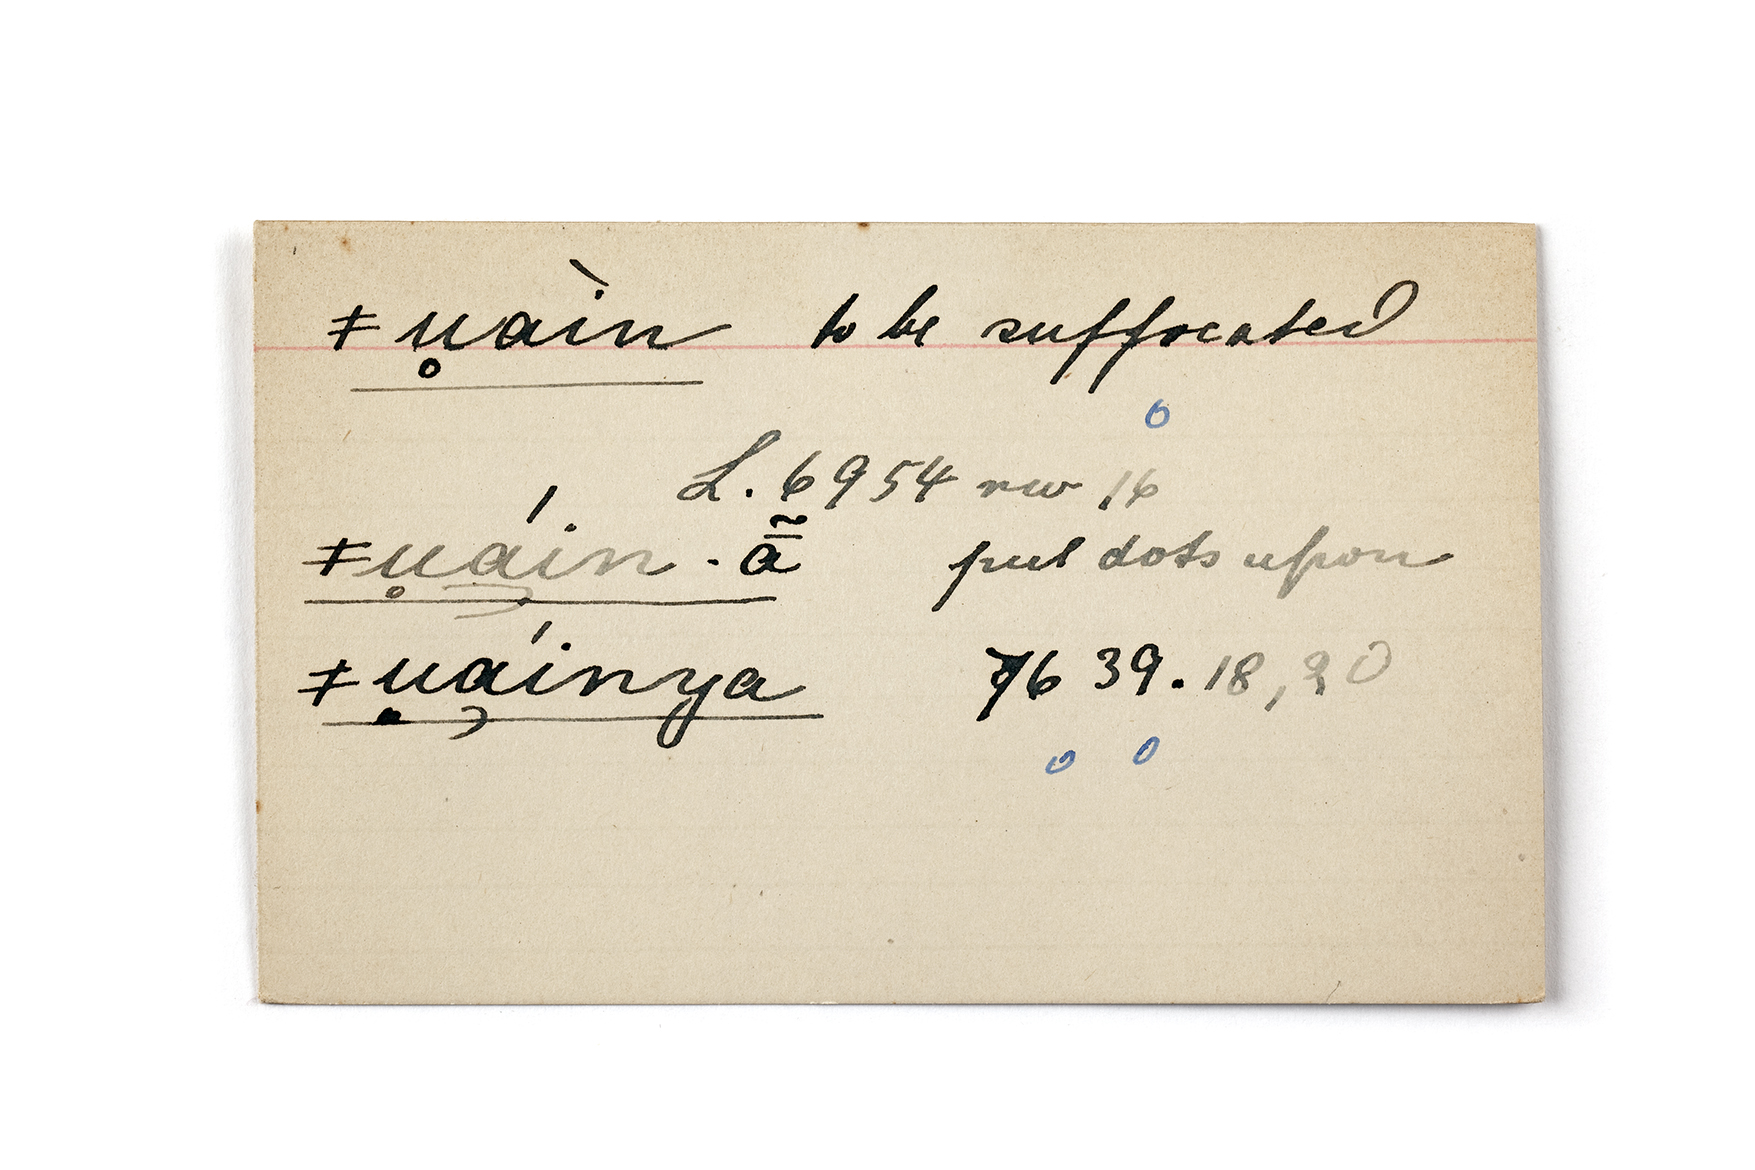 ǂu̥àin to be suffocated
L. 6954 rev 16
ǂu̥áin.ã̄ put dots upon
ǂu̥áinya 7639.18,20